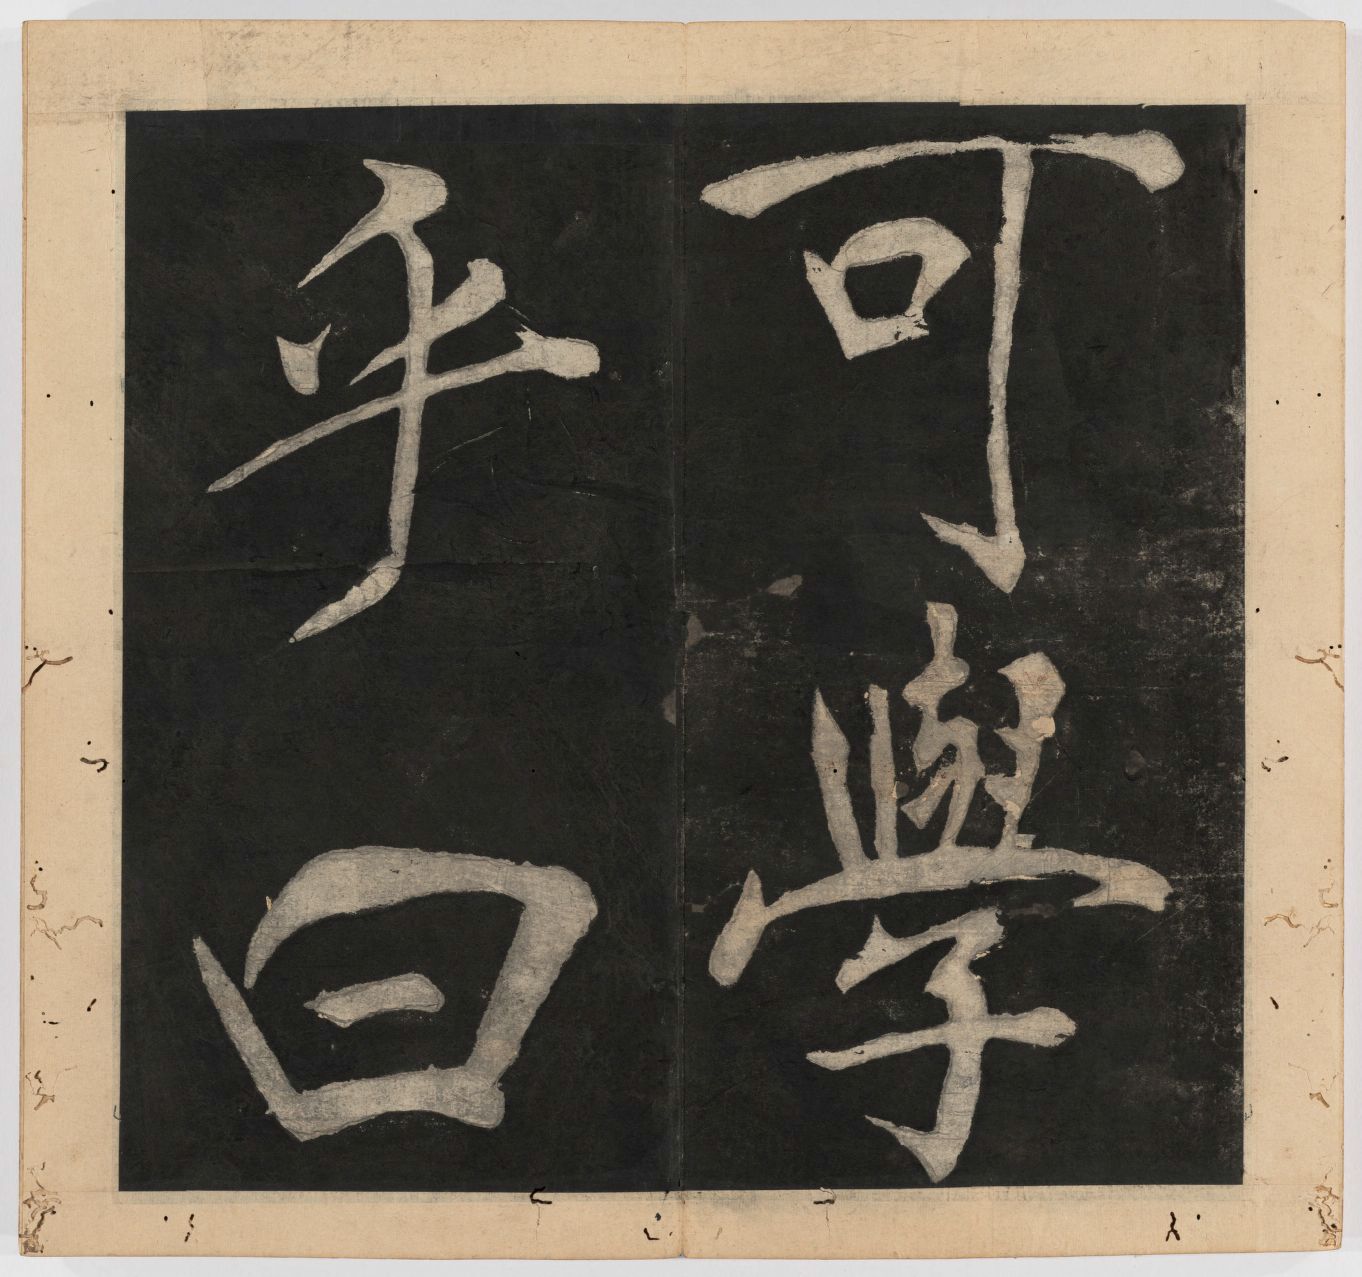 可學
乎曰